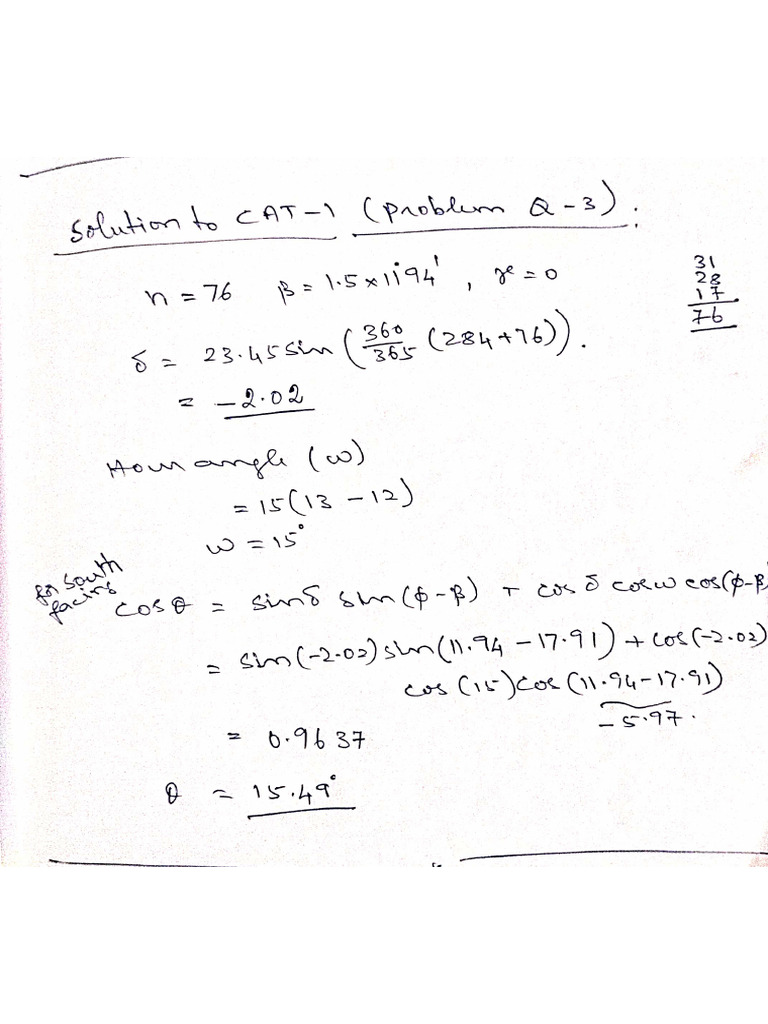 Solution to CAT-1 (Problem Q-3):
n = 76 β = 1.5 × 11°94' , γ = 0
31
28
17
76
δ = 23.45 sin (360/365 (284+76)).
= -2.02
Hour angle (ω)
= 15(13 - 12)
ω = 15°
for south
facing
cosθ = sinδ sin(φ-β) + cosδ cosω cos(φ-β
= sin(-2.02) sin(11.94 - 17.91) + cos(-2.02)
cos(15) cos(11.94-17.91)
-5.97.
= 0.9637
θ = 15.49°